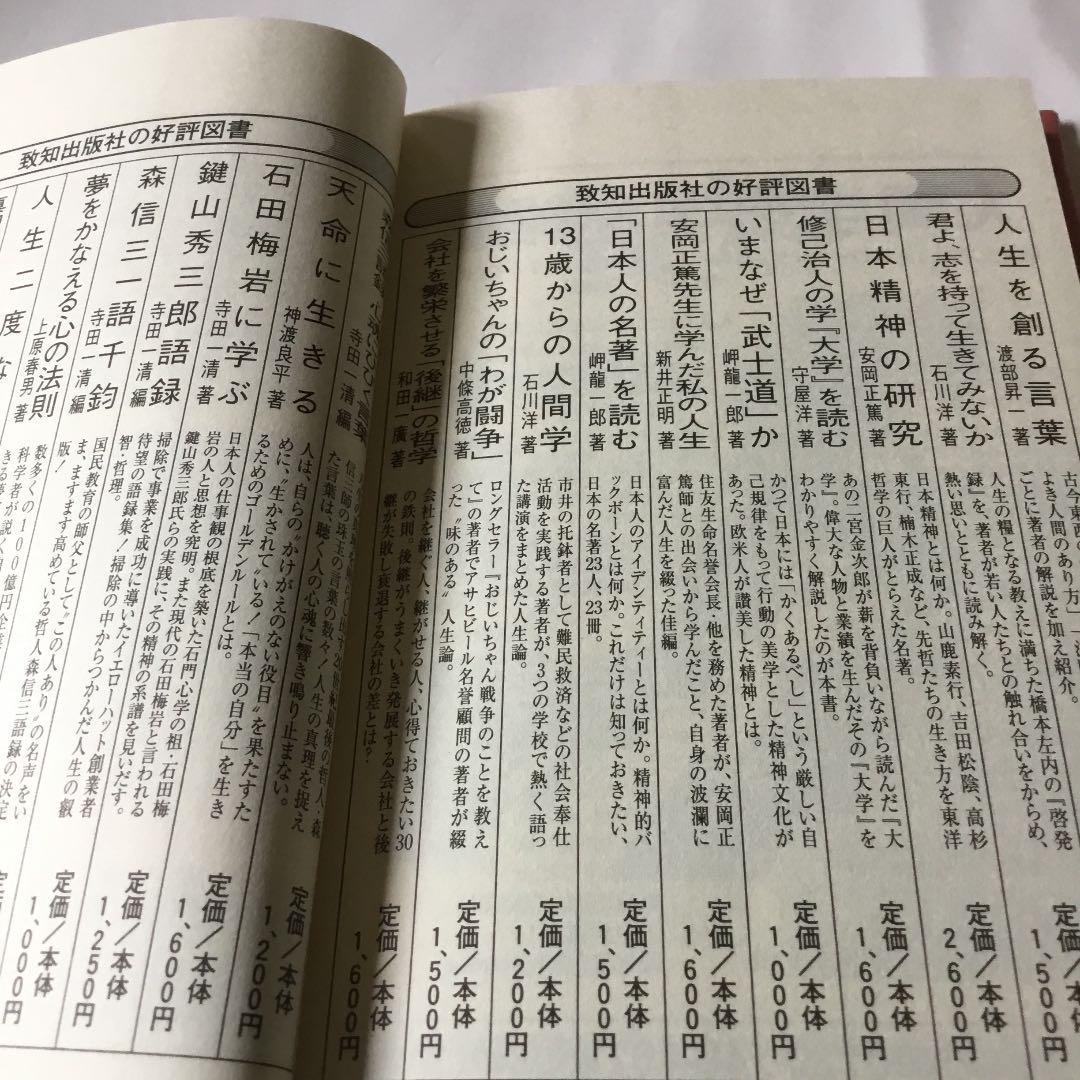 致知出版社の好評図書
人生を創る言葉
渡部昇一 著
古今東西の
よき人間のあり方
ごとに著者の解説を加え紹介。
君よ、志を持って生きてみないか
石川洋 著
人生の糧となる教えに満ちた橋本左内の『啓発
録』を、著者が若い人たちとの触れ合いをからめ、
熱い思いとともに読み解く。
定価/本体
1,500円
日本精神の研究
安岡正篤 著
日本精神とは何か。山鹿素行、吉田松陰、高杉
東行、楠木正成など、先哲たちの生き方を東洋
哲学の巨人がとらえた名著。
定価/本体
2,600円
修己治人の学『大学』を読む
守屋洋 著
あの二宮金次郎が薪を背負いながら読んだ『大
学』。偉大な人物と業績を生んだその『大学』を
わかりやすく解説したのが本書。
定価/本体
1,600円
いまなぜ「武士道」か
岬龍一郎 著
かつて日本には「かくあるべし」という厳しい自
己規律をもって行動の美学とした精神文化が
あった。欧米人が讃美した精神とは。
定価/本体
1,000円
安岡正篤先生に学んだ私の人生
新井正明 著
住友生命名誉会長、他を務めた著者が、安岡正
篤師との出会いから学んだこと、自身の波瀾に
富んだ人生を綴った佳編。
定価/本体
1,600円
「日本人の名著」を読む
岬龍一郎 著
日本人のアイデンティティーとは何か。精神的バ
ックボーンとは何か。これだけは知っておきたい、
日本の名著23人、23冊。
定価/本体
1,500円
13歳からの人間学
石川洋 著
市井の托鉢者として難民救済などの社会奉仕
活動を実践する著者が、3つの学校で熱く語っ
た講演をまとめた人生論。
定価/本体
1,200円
おじいちゃんの「わが闘争」
中條高徳 著
ロングセラー『おじいちゃん戦争のことを教え
て』の著者でアサヒビール名誉顧問の著者が綴
った〝味のある〟人生論。
定価/本体
1,500円
会社を繁栄させる「後継」の哲学
和田一廣 著
会社を継ぐ人、継がせる人、心得ておきたい30
の鉄則。後継がうまくいき発展する会社と後
継が失敗し衰退する会社の差とは?
定価/本体
1,600円
致知出版社の好評図書
寺田一清 編
信三師の珠玉の言葉の数々!人生の真理を捉え
た言葉は、聴く人の心魂に響き鳴り止まない。
天命に生きる
神渡良平 著
人は、自らの〝かけがえのない役目〟を果たすた
めに、〝生かされて〟いる!「本当の自分」を生き
るためのゴールデンルールとは。
定価/本体
1,200円
石田梅岩に学ぶ
寺田一清 著
日本人の仕事観の根底を築いた石門心学の祖・石田梅
岩の人と思想を究明。また現代の石田梅岩と言われる
鍵山秀三郎氏らの実践に、その精神の系譜を見いだす。
定価/本体
1,600円
鍵山秀三郎語録
寺田一清 編
掃除で事業を成功に導いたイエローハット創業者
待望の語録集!掃除の中からつかんだ人生の叡
智・哲理。
定価/本体
1,250円
森信三一語千鈞
寺田一清 編
国民教育の師父として〝この人あり〟の名声をい
ま、ますます高めている哲人森信三語録の決定
版!
定価/本体
1,000円
夢をかなえる心の法則
上原春男 著
数多くの100億円企業
科学者が説く
きる夢
人生二度な
円